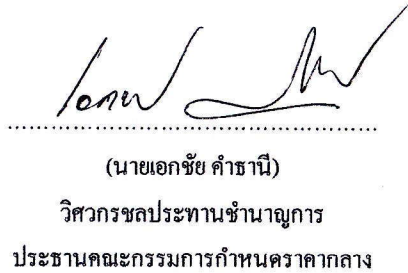 (นายเอกชัย คำธานี)
วิศวกรชลประทานชำนาญการ
ประธานคณะกรรมการกำหนดราคากลาง